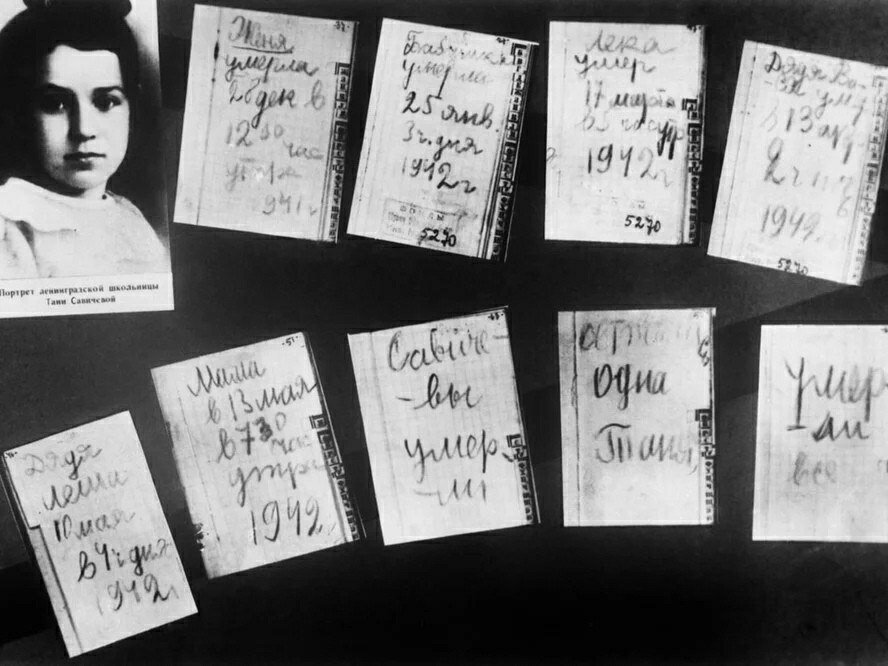 Портрет ленинградской школьницы
Тани Савичевой
Женя
умерла
28 дек в
12 30 час
утра
1941 г
Бабушка
умерла
25 янв.
3 ч. дня
1942 г
5270
Лека
умер
17 марта
в 5 час утр
1942 г
5270
Дядя Ва-
ся ум
в 13 апр
2 ч ноч
1942 г
5270
Дядя
Леша
10 мая
в 4 ч дня
1942 г
Мама
в 13 мая
в 7 30
час
утра
1942 г
Савиче-
-вы
умер
-ли
осталась
одна
Таня
умер
-ли
все